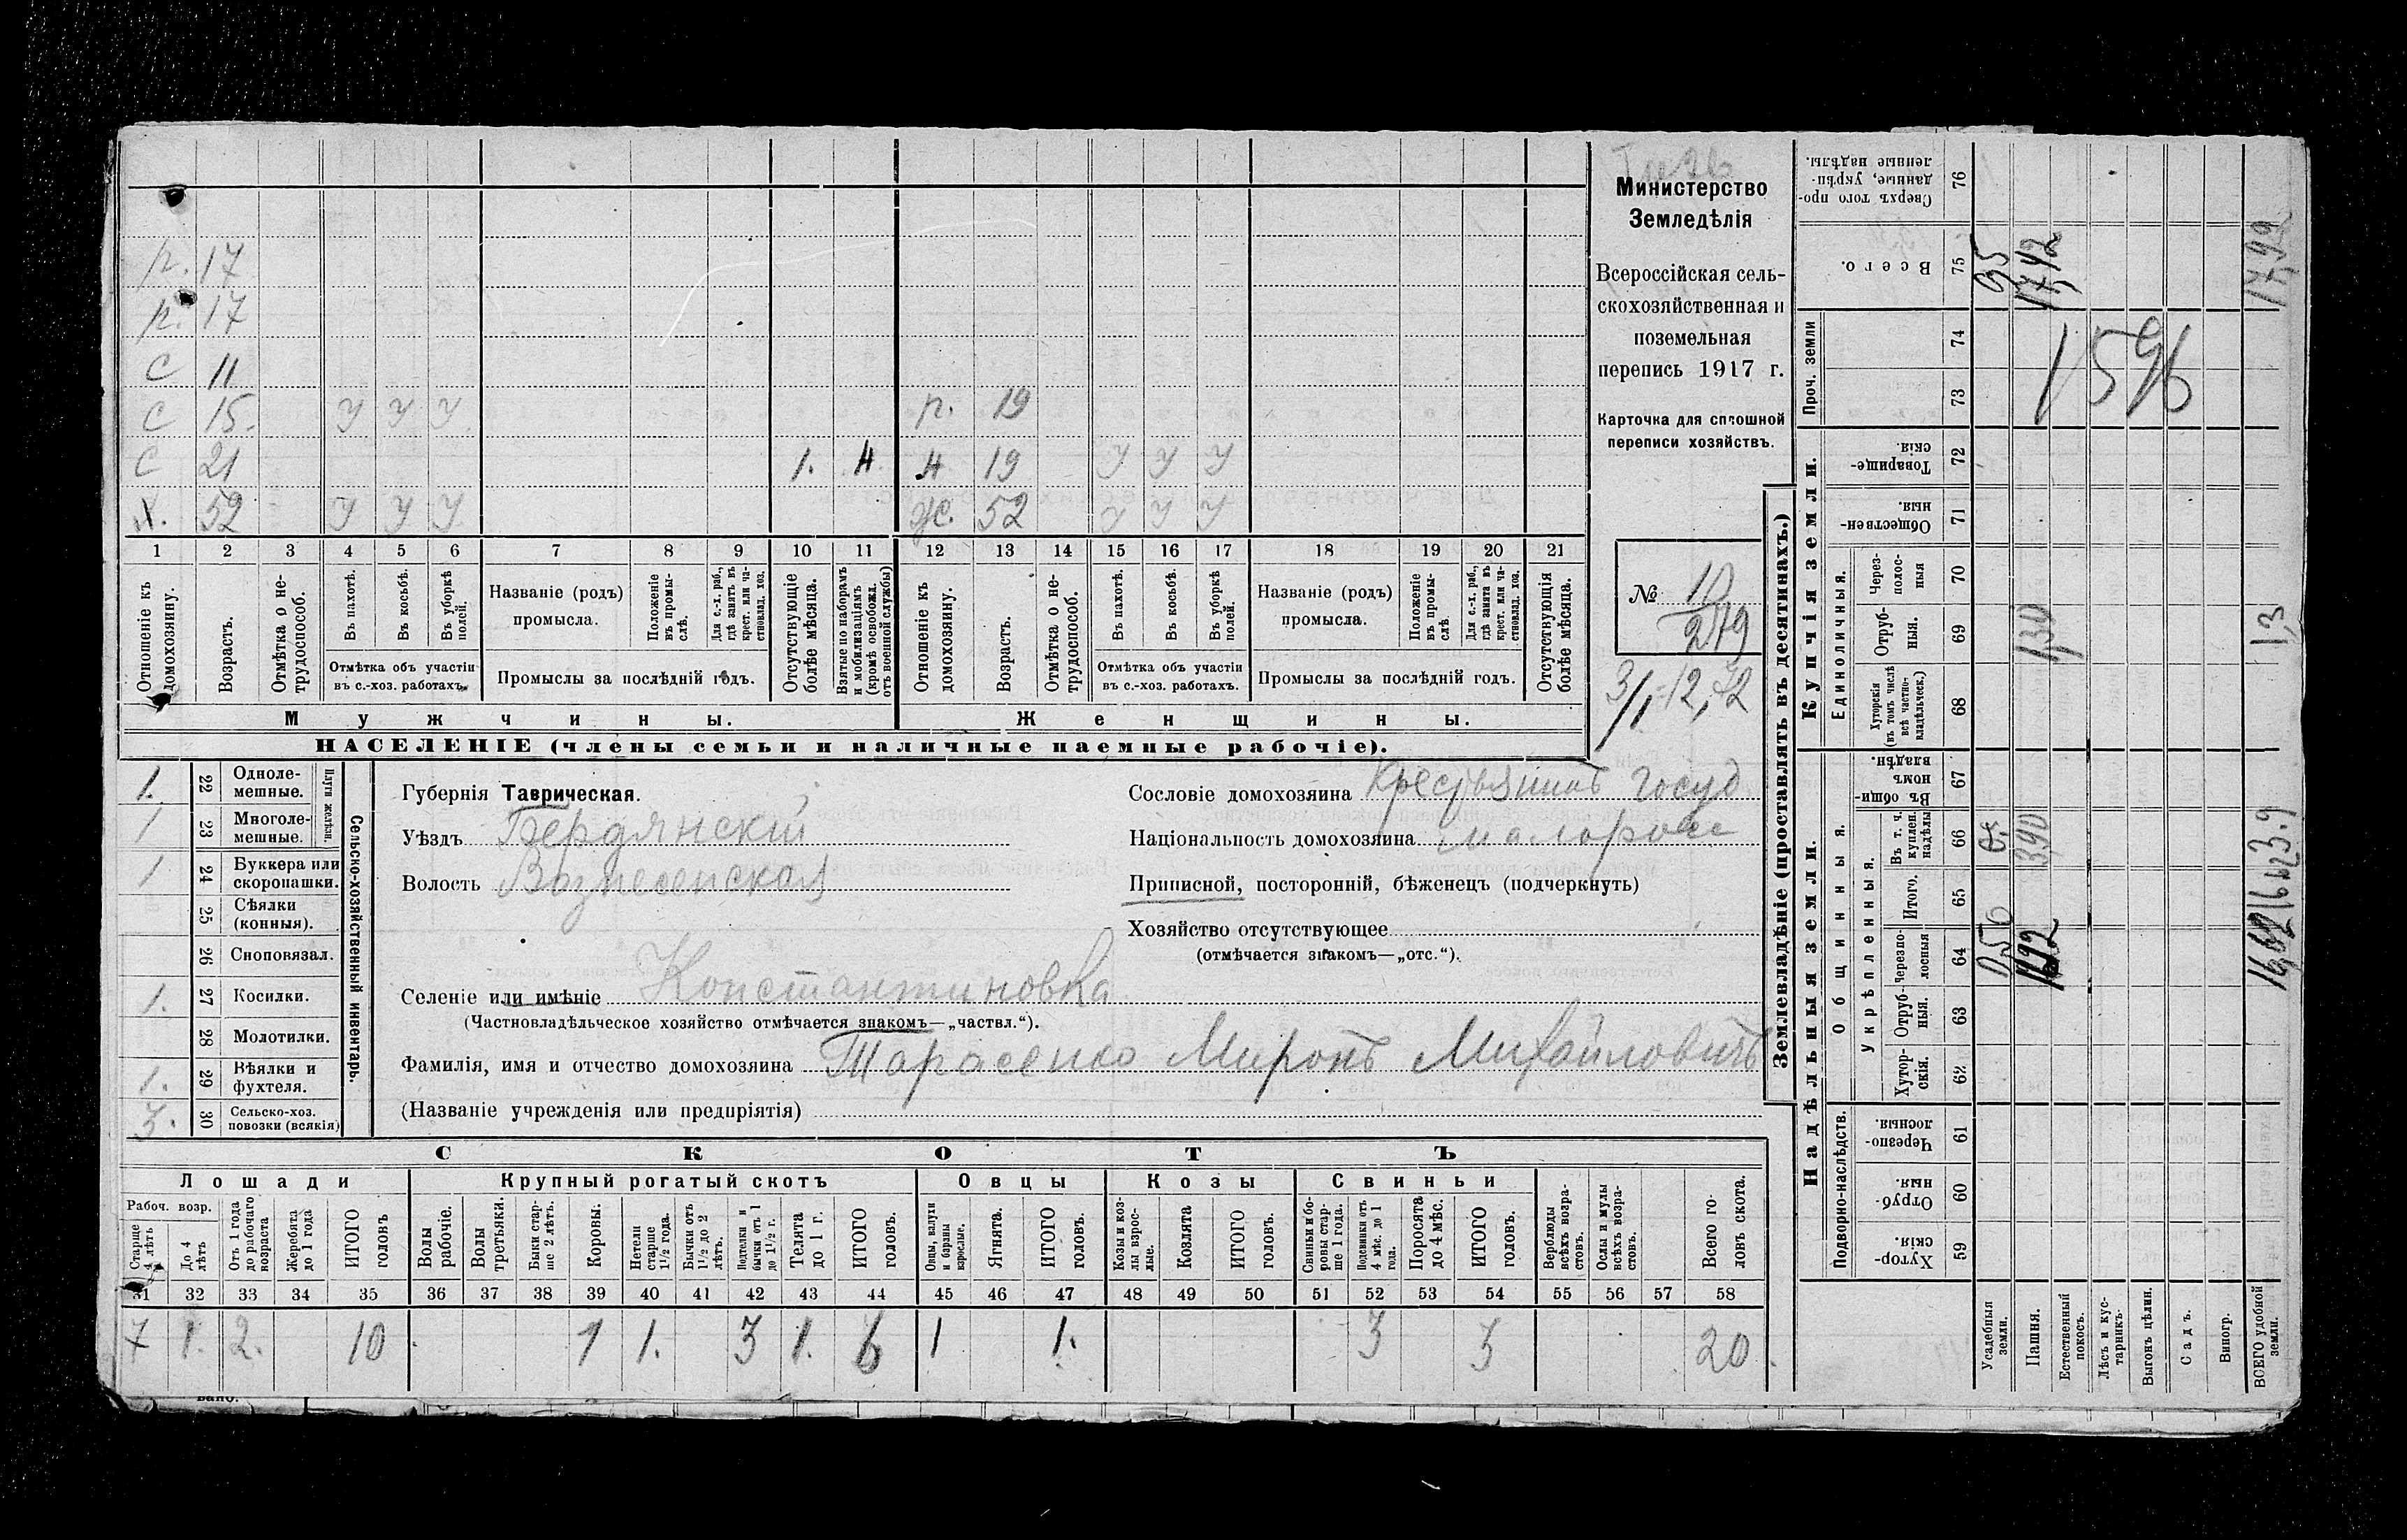 р. 17
р. 17
С 11
С 15. У У У р. 19
С 21 1. Н Н 19 У У У
Х. 52 У У У Ж. 52 У У У
1 2 3 4 5 6 7 8 9 10 11 12 13 14 15 16 17 18 19 20 21
Отношеніе къ домохозяину.
Возрастъ.
Отмѣтка о не-трудоспособ.
Въ пахотѣ.
Въ косьбѣ.
Въ уборкѣ полей.
Отмѣтка объ участіи въ с.-хоз. работахъ.
Названіе (родъ) промысла.
Положеніе въ промы-слѣ.
Для с.-х. раб., гдѣ занятъ въ крест. или ча-стновлад. хоз.
Промыслы за послѣдній годъ.
Отсутствующіе болѣе мѣсяца.
Взятые по наборамъ и мобилизаціямъ (кромѣ освобожд. отъ военной службы)
Отношеніе къ домохозяину.
Возрастъ.
Отмѣтка о не-трудоспособ.
Въ пахотѣ.
Въ косьбѣ.
Въ уборкѣ полей.
Отмѣтка объ участіи въ с.-хоз. работахъ.
Названіе (родъ) промысла.
Положеніе въ промы-слѣ.
Для с.-х. раб., гдѣ занята въ крест. или ча-стновлад. хоз.
Промыслы за послѣдній годъ.
Отсутствующія болѣе мѣсяца.
Мужчины.
Женщины.
НАСЕЛЕНІЕ (члены семьи и наличные наемные рабочіе).
Министерство
Земледѣлія
Всероссійская сель-
скохозяйственная и
поземельная
перепись 1917 г.
Карточка для сплошной
переписи хозяйствъ.
№ 10
279
3/1-12,72
1. 22 Одноле-мешные.
1 23 Многоле-мешные.
Плуги желѣзн.
1 24 Буккера или скоропашки.
25 Сѣялки (конныя).
26 Сноповязал.
1. 27 Косилки.
28 Молотилки.
1. 29 Вѣялки и фухтеля.
3. 30 Сельско-хоз. повозки (всякія)
Сельско-хозяйственный инвентарь.
Губернія Таврическая.
Уѣздъ Бердянскій
Волость Вознесенская
Селеніе или имѣніе Константиновка
(Частновладѣльческое хозяйство отмѣчается знакомъ—„частвл.“).
Фамилія, имя и отчество домохозяина Тарасенко Миронъ Михайловичъ
(Названіе учрежденія или предпріятія)
Сословіе домохозяина Крестьянинъ госуд
Національность домохозяина малоросс
Приписной, посторонній, бѣженецъ (подчеркнуть)
Хозяйство отсутствующее
(отмѣчается знакомъ—„отс.“).
СКОТЪ
Лошади
Крупный рогатый скотъ
Овцы
Козы
Свиньи
Рабоч. возр.
Старше 4 лѣтъ
До 4 лѣтъ
Отъ 1 года до рабочаго возраста
Жеребята до 1 года
ИТОГО головъ
Волы рабочіе.
Волы третьяки.
Быки стар-ше 2 лѣтъ.
Коровы.
Нетели старше 1½ года.
Бычки отъ 1½ до 2 лѣтъ.
Подтелки и бычки отъ 1 до 1½ г.
Телята до 1 г.
ИТОГО головъ.
Овцы, валухи и бараны взрослые.
Ягнята.
ИТОГО головъ.
Козы и коз-лы взрос-лые.
Козлята
ИТОГО головъ.
Свиньи и бо-ровы стар-ше 1 года.
Подсвинки отъ 4 мѣс. до 1 года.
Поросята до 4 мѣс.
ИТОГО головъ.
Верблюды всѣхъ возра-стовъ.
Ослы и мулы всѣхъ возра-стовъ.
Всего го-ловъ скота.
31 32 33 34 35 36 37 38 39 40 41 42 43 44 45 46 47 48 49 50 51 52 53 54 55 56 57 58
7 1. 2. 10 1 1. 3 1. 6 1 1. 3 3 20.
Землевладѣніе (проставлять въ десятинахъ.)
Надѣльныя земли.
Купчія земли.
Проч. земли
Подворно-наслѣдств.
Общинныя.
Укрѣпленныя.
Единоличныя.
Хутор-скія. 59
Отруб-ныя. 60
Черезпо-лосныя. 61
Хутор-скія. 62
Отруб-ныя. 63
Черезпо-лосныя 64
Итого. 65
Въ т. ч. куплен. надѣлы 66
Въ общи-номъ владѣн. 67
Хуторскія (въ томъ числѣ всѣ частно-владѣльческ.) 68
Отруб-ныя. 69
Через-полос-ныя 70
Обществен-ныя. 71
Товарище-скія. 72
73
74
Всего. 75
Сверхъ того про-данные, укрѣп-ленные надѣлы. 76
Усадебныя земли.
Пашня.
Естественный покосъ.
Лѣсъ и кус-тарникъ.
Выгонъ цѣлин.
Садъ.
Виногр.
ВСЕГО удобной земли.
0,50
390
1,30
17,42
1596
1,3
17,92